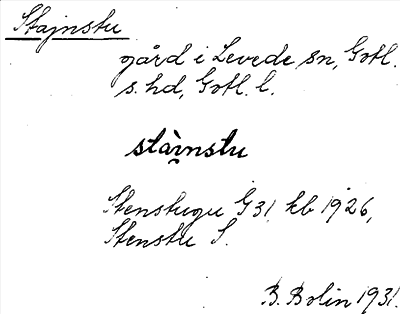 Stajnstu
gård i Levede sn, Gotl.
s. hd, Gotl. l.
stàı̯nstu
Stenstugu G 31 kb 1926,
Stenstu S.
B. Bolin 1931.